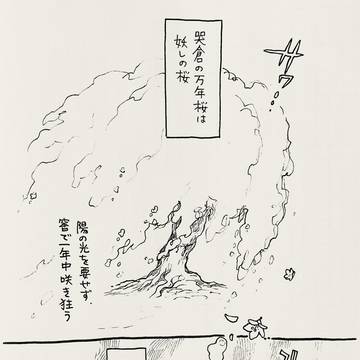 哭倉の万年桜は
妖しの桜
サワ…
陽の光を要せず、
窖で一年中咲き狂う